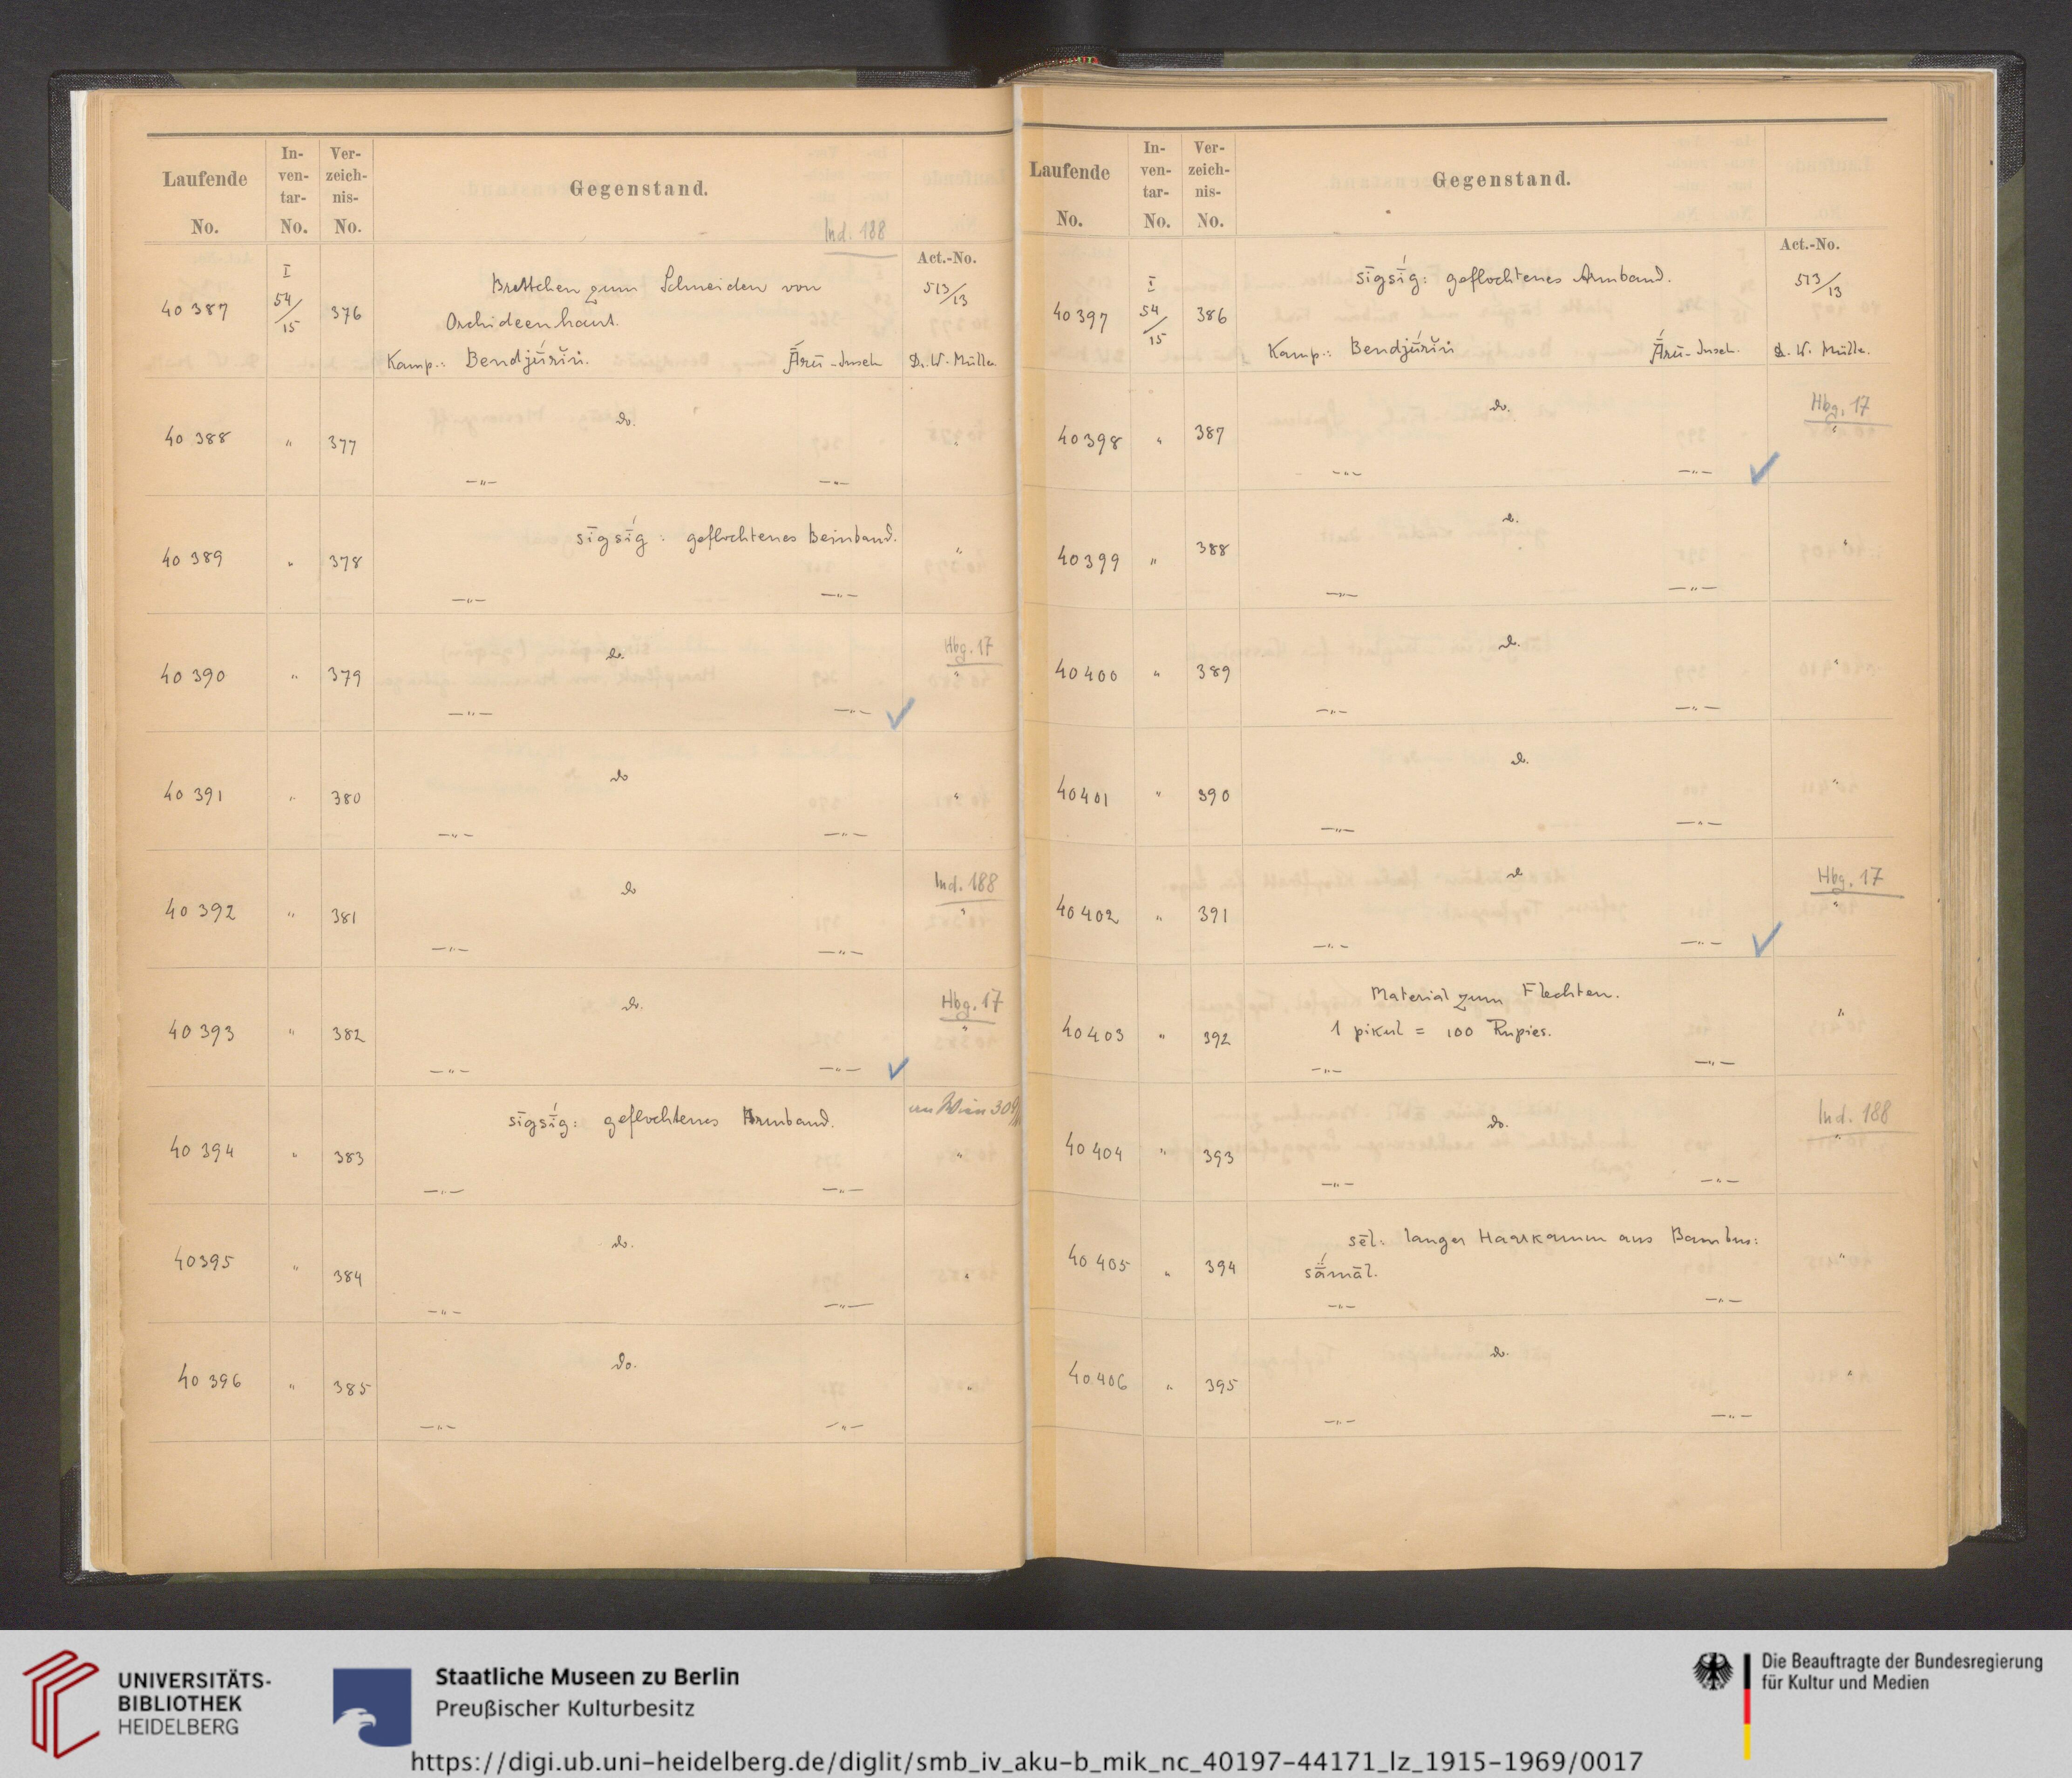 Laufende No.
In-ven-tar- No.
Ver-zeich-nis- No.
Gegenstand.
Ind. 188
Act.-No.
40 387 I 54/15 376 Brettchen zum Schneiden von 513/13
Orchideenhaut.
Kamp.: Bendjúrĭri. Ārū-Inseln Dr. W. Müller
40 388 " 377 do. "
—„— —„—
40 389 " 378 sīgsī́g: geflochtenes Beinband. "
—„— —„—
40 390 " 379 do. Hbg. 17 "
—„— —„—
40 391 " 380 do "
—„— —„—
40 392 " 381 do Ind. 188 "
—„— —„—
40 393 " 382 do. Hbg. 17 "
—„— —„—
40 394 " 383 sīgsī́g: geflochtenes Armband. an Wien "
—„— —„—
40395 " 384 do. "
—„— —„—
40 396 " 385 do. "
—„— —„—
Laufende No.
In-ven-tar- No.
Ver-zeich-nis- No.
Gegenstand.
Act.-No.
40397 I 54/15 386 sīgsī́g: geflochtenes Armband. 513/13
Kamp.: Bendjúrĭri Ārū-Inseln. Dr. W. Müller.
40398 " 387 do. Hbg. 17 "
—„— —„—
40399 " 388 do. "
—„— —„—
40400 " 389 do. "
—„— —„—
40401 " 390 do. "
—„— —„—
40402 " 391 do Hbg. 17 "
—„— —„—
40403 " 392 Material zum Flechten. "
1 pikul = 100 Rupies.
—„— —„—
40404 " 393 do. Ind. 188 "
—„— —„—
40405 " 394 sēl: langer Haarkamm aus Bambus: "
sā́māl.
—„— —„—
40406 " 395 do. "
—„— —„—
UNIVERSITÄTS-
BIBLIOTHEK
HEIDELBERG
Staatliche Museen zu Berlin
Preußischer Kulturbesitz
Die Beauftragte der Bundesregierung
für Kultur und Medien
https://digi.ub.uni-heidelberg.de/diglit/smb_iv_aku-b_mik_nc_40197-44171_lz_1915-1969/0017